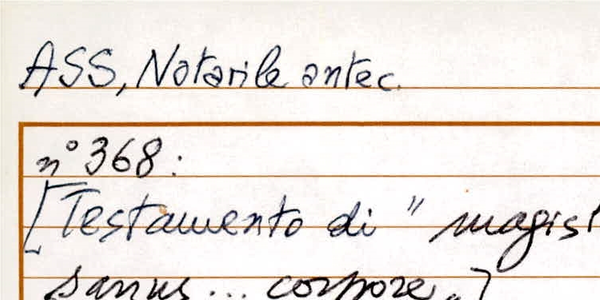 ASS, Notarile antec.
n° 368:
[Testamento di "magist
sanus... corpore"]